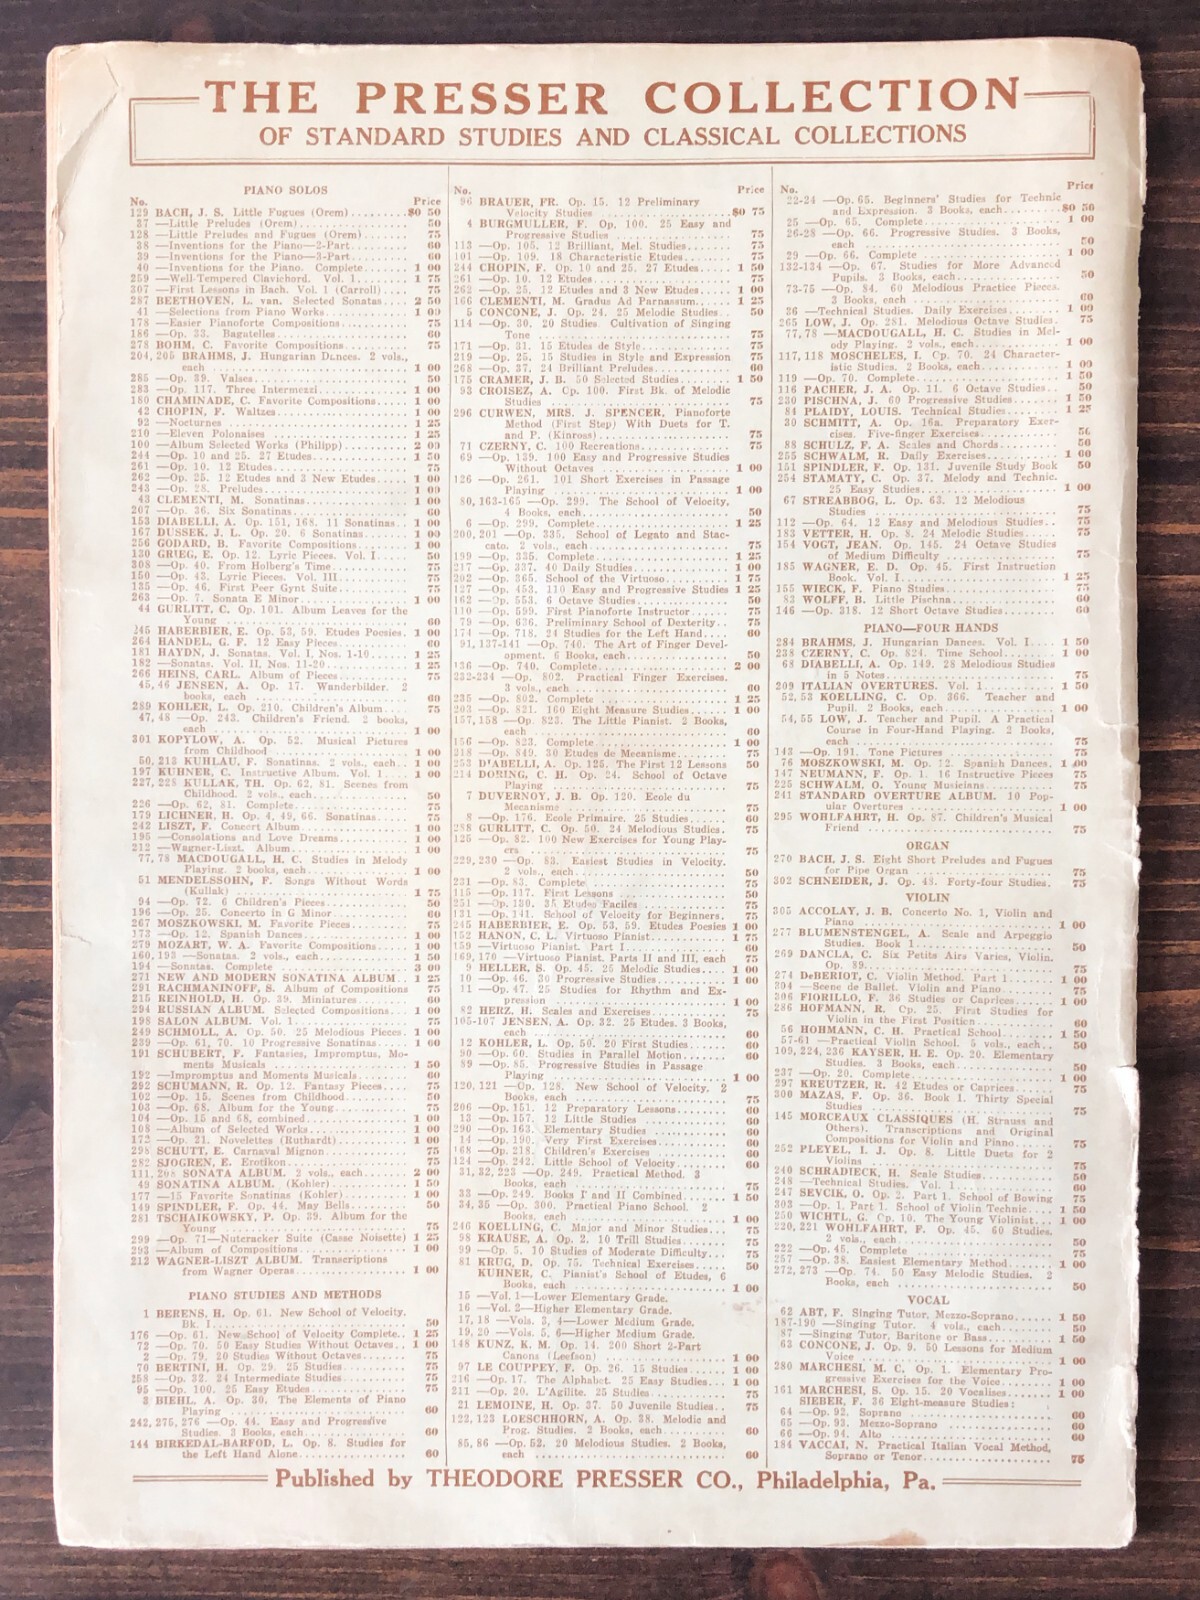 THE PRESSER COLLECTION
OF STANDARD STUDIES AND CLASSICAL COLLECTIONS
PIANO SOLOS
No. Price
129 BACH, J. S. Little Fugues (Orem) $0 50
37 —Little Preludes (Orem) 50
128 —Little Preludes and Fugues (Orem) 75
38 —Inventions for the Piano—2-Part 60
39 —Inventions for the Piano—3-Part 60
40 —Inventions for the Piano. Complete 1 00
259 —Well-Tempered Clavichord. Vol. 1 1 75
207 —First Lessons in Bach. Vol. 1 (Carroll) 75
287 BEETHOVEN, L. van. Selected Sonatas 2 50
41 —Selections from Piano Works 1 00
178 —Easier Pianoforte Compositions 75
186 —Op. 33. Bagatelles 60
278 BOHM, C. Favorite Compositions 75
204, 205 BRAHMS, J. Hungarian Dances. 2 vols.,
each 1 00
285 —Op. 39. Valses 50
283 —Op. 117. Three Intermezzi 1 00
180 CHAMINADE, C. Favorite Compositions 1 00
42 CHOPIN, F. Waltzes 1 00
92 —Nocturnes 1 25
210 —Eleven Polonaises 1 25
100 —Album Selected Works (Philipp) 2 00
244 —Op. 10 and 25. 27 Etudes 1 50
261 —Op. 10. 12 Etudes 75
262 —Op. 25. 12 Etudes and 3 New Etudes 1 00
243 —Op. 28. Preludes 1 00
43 CLEMENTI, M. Sonatinas 60
207 —Op. 36. Six Sonatinas 60
153 DIABELLI, A. Op. 151, 168. 11 Sonatinas 1 00
167 DUSSEK, J. L. Op. 20. 6 Sonatinas 1 00
256 GODARD, B. Favorite Compositions 1 00
130 GRIEG, E. Op. 12. Lyric Pieces. Vol. I 50
308 —Op. 40. From Holberg's Time 75
150 —Op. 43. Lyric Pieces. Vol. III 75
135 —Op. 46. First Peer Gynt Suite 75
263 —Op. 7. Sonata E Minor 1 00
44 GURLITT, C. Op. 101. Album Leaves for the
Young 60
245 HABERBIER, E. Op. 53, 59. Etudes Poesies 1 00
264 HANDEL, G. F. 12 Easy Pieces 60
181 HAYDN, J. Sonatas. Vol. I, Nos. 1-10 1 25
182 —Sonatas. Vol. II, Nos. 11-20 1 25
266 HEINS, CARL. Album of Pieces 75
45, 46 JENSEN, A. Op. 17. Wanderbilder. 2
books, each 60
289 KOHLER, L. Op. 210. Children's Album 75
47, 48 —Op. 243. Children's Friend. 2 books,
each 1 00
301 KOPYLOW, A. Op. 52. Musical Pictures
from Childhood 1 00
50, 213 KUHLAU, F. Sonatinas. 2 vols., each 1 00
197 KUHNER, C. Instructive Album. Vol. 1 1 00
227, 228 KULLAK, TH. Op. 62, 81. Scenes from
Childhood. 2 vols., each 50
226 —Op. 62, 81. Complete 75
179 LICHNER, H. Op. 4, 49, 66. Sonatinas 75
242 LISZT, F. Concert Album 1 00
195 —Consolations and Love Dreams 1 00
212 —Wagner-Liszt. Album 1 00
77, 78 MACDOUGALL, H. C. Studies in Melody
Playing. 2 books, each 1 00
51 MENDELSSOHN, F. Songs Without Words
(Kullak) 1 75
94 —Op. 72. 6 Children's Pieces 50
196 —Op. 25. Concerto in G Minor 60
267 MOSZKOWSKI, M. Favorite Pieces 75
173 —Op. 12. Spanish Dances 1 00
279 MOZART, W. A. Favorite Compositions 1 00
160, 193 —Sonatas. 2 vols., each 1 50
194 —Sonatas. Complete 3 00
271 NEW AND MODERN SONATINA ALBUM 1 25
291 RACHMANINOFF, S. Album of Compositions 75
215 REINHOLD, H. Op. 39. Miniatures 60
294 RUSSIAN ALBUM. Selected Compositions 1 00
198 SALON ALBUM. Vol. 1 75
249 SCHMOLL, A. Op. 50. 25 Melodious Pieces 1 00
239 —Op. 61, 70. 10 Progressive Sonatinas 1 00
191 SCHUBERT, F. Fantasies, Impromptus, Mo-
ments Musicals 1 50
192 —Impromptus and Moments Musicals 60
292 SCHUMANN, R. Op. 12. Fantasy Pieces 75
102 —Op. 15. Scenes from Childhood 50
103 —Op. 68. Album for the Young 75
104 —Op. 15 and 68, combined 1 00
108 —Album of Selected Works 1 00
172 —Op. 21. Novelettes (Ruthardt) 1 00
298 SCHUTT, E. Carnaval Mignon 75
282 SJOGREN, E. Erotikon 75
111, 208 SONATA ALBUM. 2 vols., each 2 00
49 SONATINA ALBUM. (Kohler) 1 50
177 —15 Favorite Sonatinas (Kohler) 1 00
149 SPINDLER, F. Op. 44. May Bells 50
281 TSCHAIKOWSKY, P. Op. 39. Album for the
Young 75
299 —Op. 71—Nutcracker Suite (Casse Noisette) 1 25
293 —Album of Compositions 1 00
212 WAGNER-LISZT ALBUM. Transcriptions
from Wagner Operas 1 00
PIANO STUDIES AND METHODS
1 BERENS, H. Op. 61. New School of Velocity.
Bk. I 50
176 —Op. 61. New School of Velocity Complete 1 25
72 —Op. 70. 50 Easy Studies Without Octaves 1 00
2 —Op. 79. 20 Studies Without Octaves 75
70 BERTINI, H. Op. 29. 25 Studies 75
258 —Op. 32. 24 Intermediate Studies 75
95 —Op. 100. 25 Easy Etudes 75
3 BIEHL, A. Op. 30. The Elements of Piano
Playing 60
242, 275, 276 —Op. 44. Easy and Progressive
Studies. 3 Books, each 60
144 BIRKEDAL-BARFOD, L. Op. 8. Studies for
the Left Hand Alone 60
No. Price
96 BRAUER, FR. Op. 15. 12 Preliminary
Velocity Studies $0 75
4 BURGMULLER, F. Op. 100. 25 Easy and
Progressive Studies 75
113 —Op. 105. 12 Brilliant, Mel. Studies 75
101 —Op. 109. 18 Characteristic Etudes 75
244 CHOPIN, F. Op. 10 and 25. 27 Etudes 1 50
261 —Op. 10. 12 Etudes 75
262 —Op. 25. 12 Etudes and 3 New Etudes 1 00
166 CLEMENTI, M. Gradus Ad Parnassum 1 25
5 CONCONE, J. Op. 24. 25 Melodic Studies 50
114 —Op. 30. 20 Studies. Cultivation of Singing
Tone 75
171 —Op. 31. 15 Etudes de Style 75
219 —Op. 25. 15 Studies in Style and Expression 75
268 —Op. 37. 24 Brilliant Preludes 60
175 CRAMER, J. B. 50 Selected Studies 1 50
93 CROISEZ, A. Op. 100. First Bk. of Melodic
Studies 75
296 CURWEN, MRS. J. SPENCER, Pianoforte
Method (First Step) With Duets for T.
and P. (Kinross) 75
71 CZERNY, C. 100 Recreations 75
69 —Op. 139. 100 Easy and Progressive Studies
Without Octaves 1 00
126 —Op. 261. 101 Short Exercises in Passage
Playing 1 00
80, 163-165 —Op. 299. The School of Velocity,
4 Books, each 50
6 —Op. 299, Complete 1 25
200, 201 —Op. 335. School of Legato and Stac-
cato. 2 vols., each 75
199 —Op. 335. Complete 1 25
217 —Op. 337. 40 Daily Studies 1 00
202 —Op. 365. School of the Virtuoso 1 75
127 —Op. 453. 110 Easy and Progressive Studies 1 25
162 —Op. 553. 6 Octave Studies 50
110 —Op. 599. First Pianoforte Instructor 75
79 —Op. 636. Preliminary School of Dexterity 75
174 —Op. 718. 24 Studies for the Left Hand 60
91, 137-141 —Op. 740. The Art of Finger Devel-
opment. 6 Books, each 50
136 —Op. 740. Complete 2 00
232-234 —Op. 802. Practical Finger Exercises.
3 vols., each 60
235 —Op. 802. Complete 1 25
203 —Op. 821. 160 Eight Measure Studies 1 00
157, 158 —Op. 823. The Little Pianist. 2 Books,
each 60
156 —Op. 823. Complete 1 00
218 —Op. 849. 30 Etudes de Mecanisme 75
253 DIABELLI, A. Op. 125. The First 12 Lessons 50
214 DORING, C. H. Op. 24. School of Octave
Playing 75
7 DUVERNOY, J. B. Op. 120. Ecole du
Mecanisme 75
8 —Op. 176. Ecole Primaire. 25 Studies 60
288 GURLITT, C. Op. 50. 24 Melodious Studies 75
125 —Op. 82. 100 New Exercises for Young Play-
ers 75
229, 230 —Op. 83. Easiest Studies in Velocity.
2 vols., each 50
231 —Op. 83. Complete 75
115 —Op. 117. First Lessons 50
251 —Op. 130. 35 Etudes Faciles 75
131 —Op. 141. School of Velocity for Beginners 75
245 HABERBIER, E. Op. 53, 59. Etudes Poesies 1 00
152 HANON, C. L. Virtuoso Pianist 1 75
159 —Virtuoso Pianist. Part I 60
169, 170 —Virtuoso Pianist. Parts II and III, each 75
9 HELLER, S. Op. 45. 25 Melodic Studies 1 00
10 —Op. 46. 30 Progressive Studies 1 00
11 —Op. 47. 25 Studies for Rhythm and Ex-
pression 1 00
82 HERZ, H. Scales and Exercises 75
105-107 JENSEN, A. Op. 32. 25 Etudes. 3 Books,
each 60
12 KOHLER, L. Op. 50. 20 First Studies 60
90 —Op. 60. Studies in Parallel Motion 60
89 —Op. 85. Progressive Studies in Passage
Playing 1 00
120, 121 —Op. 128. New School of Velocity. 2
Books, each 75
206 —Op. 151. 12 Preparatory Lessons 60
13 —Op. 157. 12 Little Studies 60
290 —Op. 163. Elementary Studies 60
14 —Op. 190. Very First Exercises 60
168 —Op. 218. Children's Exercises 60
124 —Op. 242. Little School of Velocity 60
31, 32, 223 —Op. 249. Practical Method. 3
Books, each 75
33 —Op. 249. Books I and II Combined 1 50
34, 35 —Op. 300. Practical Piano School. 2
Books, each 1 00
246 KOELLING, C. Major and Minor Studies 75
98 KRAUSE, A. Op. 2. 10 Trill Studies 75
99 —Op. 5. 10 Studies of Moderate Difficulty 75
81 KRUG, D. Op. 75. Technical Exercises 50
KUHNER, C. Pianist's School of Etudes, 6
Books, each 1 00
15 —Vol. 1—Lower Elementary Grade.
16 —Vol. 2—Higher Elementary Grade.
17, 18 —Vols. 3, 4—Lower Medium Grade.
19, 20 —Vols. 5, 6—Higher Medium Grade.
148 KUNZ, K. M. Op. 14. 200 Short 2-Part
Canons (Leefson) 1 00
97 LE COUPPEY, F. Op. 26. 15 Studies 1 00
216 —Op. 17. The Alphabet. 25 Easy Studies 1 00
211 —Op. 20. L'Agilite. 25 Studies 75
21 LEMOINE, H. Op. 37. 50 Juvenile Studies 75
122, 123 LOESCHHORN, A. Op. 38. Melodic and
Prog. Studies. 2 Books, each 60
85, 86 —Op. 52. 20 Melodious Studies. 2 Books,
each 60
No. Price
22-24 —Op. 65. Beginners' Studies for Technic
and Expression. 3 Books, each $0 50
25 —Op. 65. Complete 1 00
26-28 —Op. 66. Progressive Studies. 3 Books,
each 50
29 —Op. 66. Complete 1 00
132-134 —Op. 67. Studies for More Advanced
Pupils. 3 Books, each 50
73-75 —Op. 84. 60 Melodious Practice Pieces.
3 Books, each 60
36 —Technical Studies. Daily Exercises 1 00
265 LOW, J. Op. 281. Melodious Octave Studies 75
77, 78 —MACDOUGALL, H. C. Studies in Mel-
ody Playing. 2 vols., each 1 00
117, 118 MOSCHELES, I. Op. 70. 24 Character-
istic Studies. 2 Books, each 1 00
119 —Op. 70. Complete 1 50
116 PACHER, J. A. Op. 11. 6 Octave Studies 50
230 PISCHNA, J. 60 Progressive Studies 1 50
84 PLAIDY, LOUIS. Technical Studies 1 25
30 SCHMITT, A. Op. 16a. Preparatory Exer-
cises. Five-finger Exercises
88 SCHULZ, F. A. Scales and Chords 50
255 SCHWALM, R. Daily Exercises 1 00
151 SPINDLER, F. Op. 131. Juvenile Study Book 50
254 STAMATY, C. Op. 37. Melody and Technic.
25 Easy Studies 1 00
67 STREABBOG, L. Op. 63. 12 Melodious
Studies 75
112 —Op. 64. 12 Easy and Melodious Studies 75
183 VETTER, H. Op. 8. 24 Melodic Studies 75
154 VOGT, JEAN. Op. 145. 24 Octave Studies
of Medium Difficulty 75
185 WAGNER, E. D. Op. 45. First Instruction
Book. Vol. I 1 25
155 WIECK, F. Piano Studies 75
83 WOLFF, B. Little Pischna 60
146 —Op. 318. 12 Short Octave Studies 60
PIANO—FOUR HANDS
284 BRAHMS, J. Hungarian Dances. Vol. I 1 50
238 CZERNY, C. Op. 824. Time School 1 00
68 DIABELLI, A. Op. 149. 28 Melodious Studies
in 5 Notes 75
209 ITALIAN OVERTURES. Vol. 1 1 50
52, 53 KOELLING, C. Op. 366. Teacher and
Pupil. 2 Books, each 1 00
54, 55 LOW, J. Teacher and Pupil. A Practical
Course in Four-Hand Playing. 2 Books,
each 75
143 —Op. 191. Tone Pictures 75
76 MOSZKOWSKI, M. Op. 12. Spanish Dances. 1 00
147 NEUMANN, F. Op. 1. 16 Instructive Pieces 75
225 SCHWALM, O. Young Musicians 75
241 STANDARD OVERTURE ALBUM. 10 Pop-
ular Overtures 1 00
295 WOHLFAHRT, H. Op. 87. Children's Musical
Friend 75
ORGAN
270 BACH, J. S. Eight Short Preludes and Fugues
for Pipe Organ 75
302 SCHNEIDER, J. Op. 48. Forty-four Studies. 75
VIOLIN
305 ACCOLAY, J. B. Concerto No. 1, Violin and
Piano 1 00
277 BLUMENSTENGEL, A. Scale and Arpeggio
Studies. Book 1 50
269 DANCLA, C. Six Petits Airs Varies, Violin.
Op. 89 75
274 DeBERIOT, C. Violin Method. Part 1 1 00
304 —Scene de Ballet. Violin and Piano 75
306 FIORILLO, F. 36 Studies or Caprices 1 00
286 HOFMANN, R. Op. 25. First Studies for
Violin in the First Position 60
56 HOHMANN, C. H. Practical School 1 50
57-61 —Practical Violin School. 5 vols., each 50
109, 224, 236 KAYSER, H. E. Op. 20. Elementary
Studies. 3 Books, each 50
237 —Op. 20. Complete 1 00
297 KREUTZER, R. 42 Etudes or Caprices 75
300 MAZAS, F. Op. 36. Book 1. Thirty Special
Studies 75
145 MORCEAUX CLASSIQUES (H. Strauss and
Others). Transcriptions and Original
Compositions for Violin and Piano 75
252 PLEYEL, I. J. Op. 8. Little Duets for 2
Violins 75
240 SCHRADIECK, H. Scale Studies 50
248 —Technical Studies. Vol. 1 60
247 SEVCIK, O. Op. 2. Part 1. School of Bowing 75
303 —Op. 1. Part 1. School of Violin Technic 1 50
250 WICHTL, G. Op. 10. The Young Violinist 1 00
220, 221 WOHLFAHRT, F. Op. 45. 60 Studies.
2 vols., each 50
222 —Op. 45. Complete 75
257 —Op. 38. Easiest Elementary Method 1 00
272, 273 —Op. 74. 50 Easy Melodic Studies. 2
Books, each 50
VOCAL
62 ABT, F. Singing Tutor, Mezzo-Soprano 1 50
187-190 —Singing Tutor. 4 vols., each 50
87 —Singing Tutor, Baritone or Bass 1 50
63 CONCONE, J. Op. 9. 50 Lessons for Medium
Voice 1 00
280 MARCHESI, M. C. Op. 1. Elementary Pro-
gressive Exercises for the Voice 1 00
161 MARCHESI, S. Op. 15. 20 Vocalises 1 00
SIEBER, F. 36 Eight-measure Studies:
64 —Op. 92. Soprano 60
65 —Op. 93. Mezzo-Soprano 60
66 —Op. 94. Alto 60
184 VACCAI, N. Practical Italian Vocal Method,
Soprano or Tenor 75
Published by THEODORE PRESSER CO., Philadelphia, Pa.